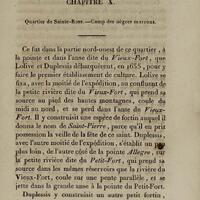 CHAPITRE X.
Quartier de Sainte-Rose. — Camp des nègres marrons.
Ce fut dans la partie nord-ouest de ce quartier, à
la pointe et dans l'anse dite du Vieux-Fort, que
Lolive et Duplessis débarquèrent, en 1635, pour y
former le premier établissement de culture. Lolive se
fixa, avec la moitié de l'expédition, au confluent de
la petite rivière dite du Vieux-Fort, qui prend sa
source au pied des hautes montagnes, coule du
midi au nord, et se perd dans l'anse du Vieux-
Fort. Il y construisit une espèce de fortin auquel il
donna le nom de Saint-Pierre, parce qu'il en prit
possession la veille de la fête de ce saint. Duplessis,
avec l'autre moitié de l'expédition, s'établit un peu
plus loin, de l'autre côté de la pointe Allegre, sur
la petite rivière dite du Petit-Fort, qui prend sa
source dans les mêmes réservoirs que la rivière du
Vieux-Fort, coule sur une pente parallèle, et se
jette dans la grande anse à la pointe du Petit-Fort.
Duplessis y construisit un autre petit fortin,